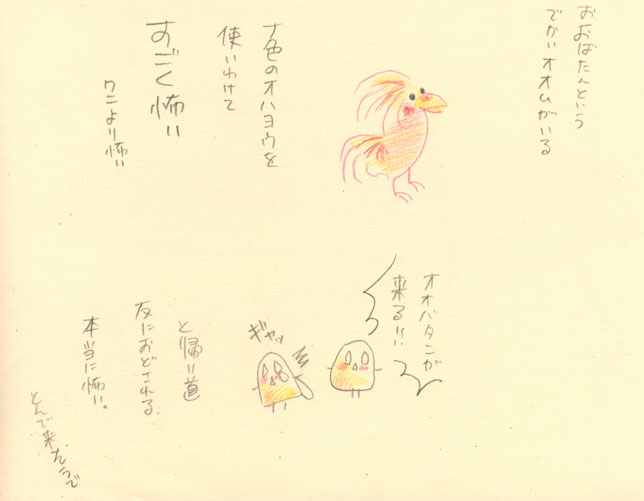 おおばたんという
でかいオオムがいる
七色のオハヨウを
使いわけて
すごく怖い
ワニより怖い
オオバタンが
来る!!!
ギャッ
と帰り道
友におどされる
本当に怖い。
とんで来そうで